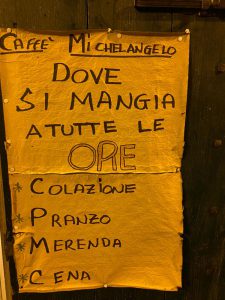 CAFFE' MICHELANGELO
DOVE
SI MANGIA
A TUTTE LE
ORE
* COLAZIONE
* PRANZO
* MERENDA
* CENA